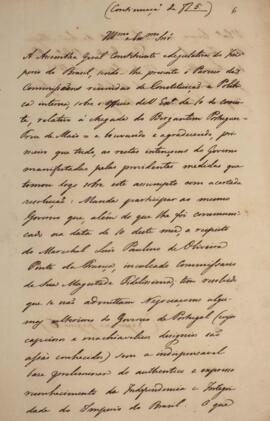 (Continuação de 725)
6
Ill.mo e Ex.mo Snr.
A Assembléa Geral Constituinte e Legislativa do Im-
perio do Brasil, sendo-lhe presente o Parecer das
Commissões reunidas de Constituição, e Poli-
tica interna, sobre o Officio de V. Ex.ª de 10 do cor.te
relativo á chegada do Bergantim Portuguez
Treze de Maio e louvando e agradecendo, pri-
meiro que tudo, as rectas intenções do Governo
manifestadas pelas providentes medidas que
tomou logo sobre este assumpto com acertada
resolução: Manda participar ao mesmo
Governo que, além do que lhe foi communi-
cado na data de 10 deste mez, a respeito
do Marechal Luis Paulino de Oliveira
Pinto da França, inculcado Commissario
de Sua Magestade Fidelissima; tem resolvido
que se não admittam Negociações algu-
mas ulteriores do Governo de Portugal (cujos
capciosos e machiavelicos designios são
assás conhecidos) sem a indispensavel
base preliminar do authentico e expresso
reconhecimento da Independencia e Integri-
dade do Imperio do Brasil. O que